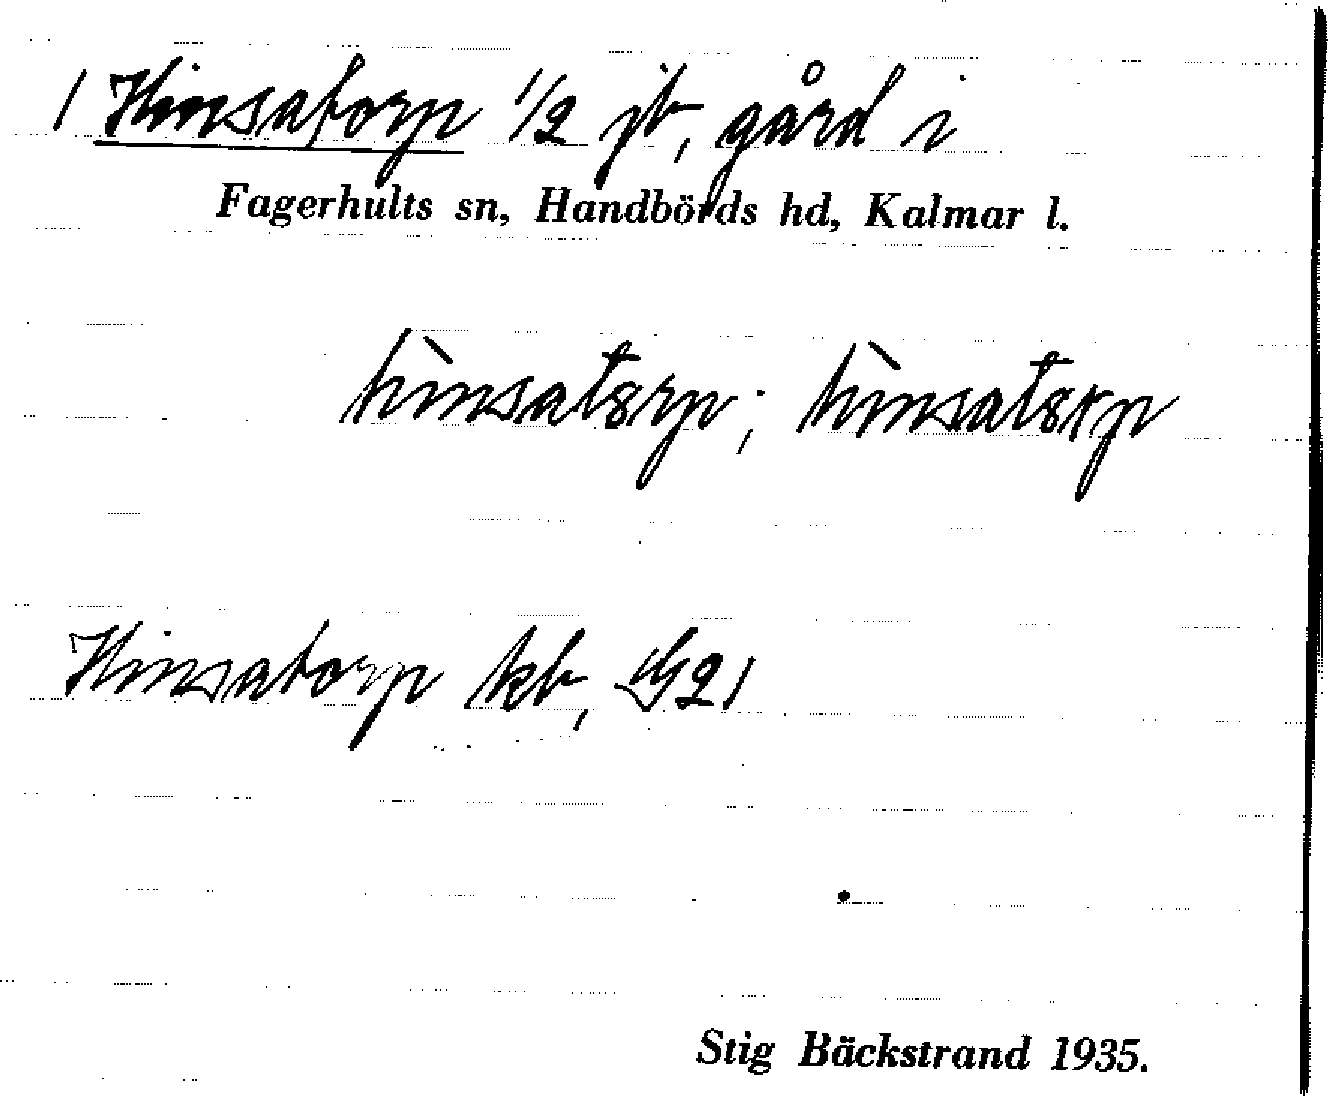 / Hinsatorp 1/2 jb, gård i
Fagerhults sn, Handbörds hd, Kalmar l.
hìnsatɜrp; hìnsatɜrp
Hinsatorp kb, G21
Stig Bäckstrand 1935.